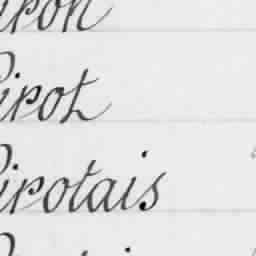 iron
Pirot
Pirotais